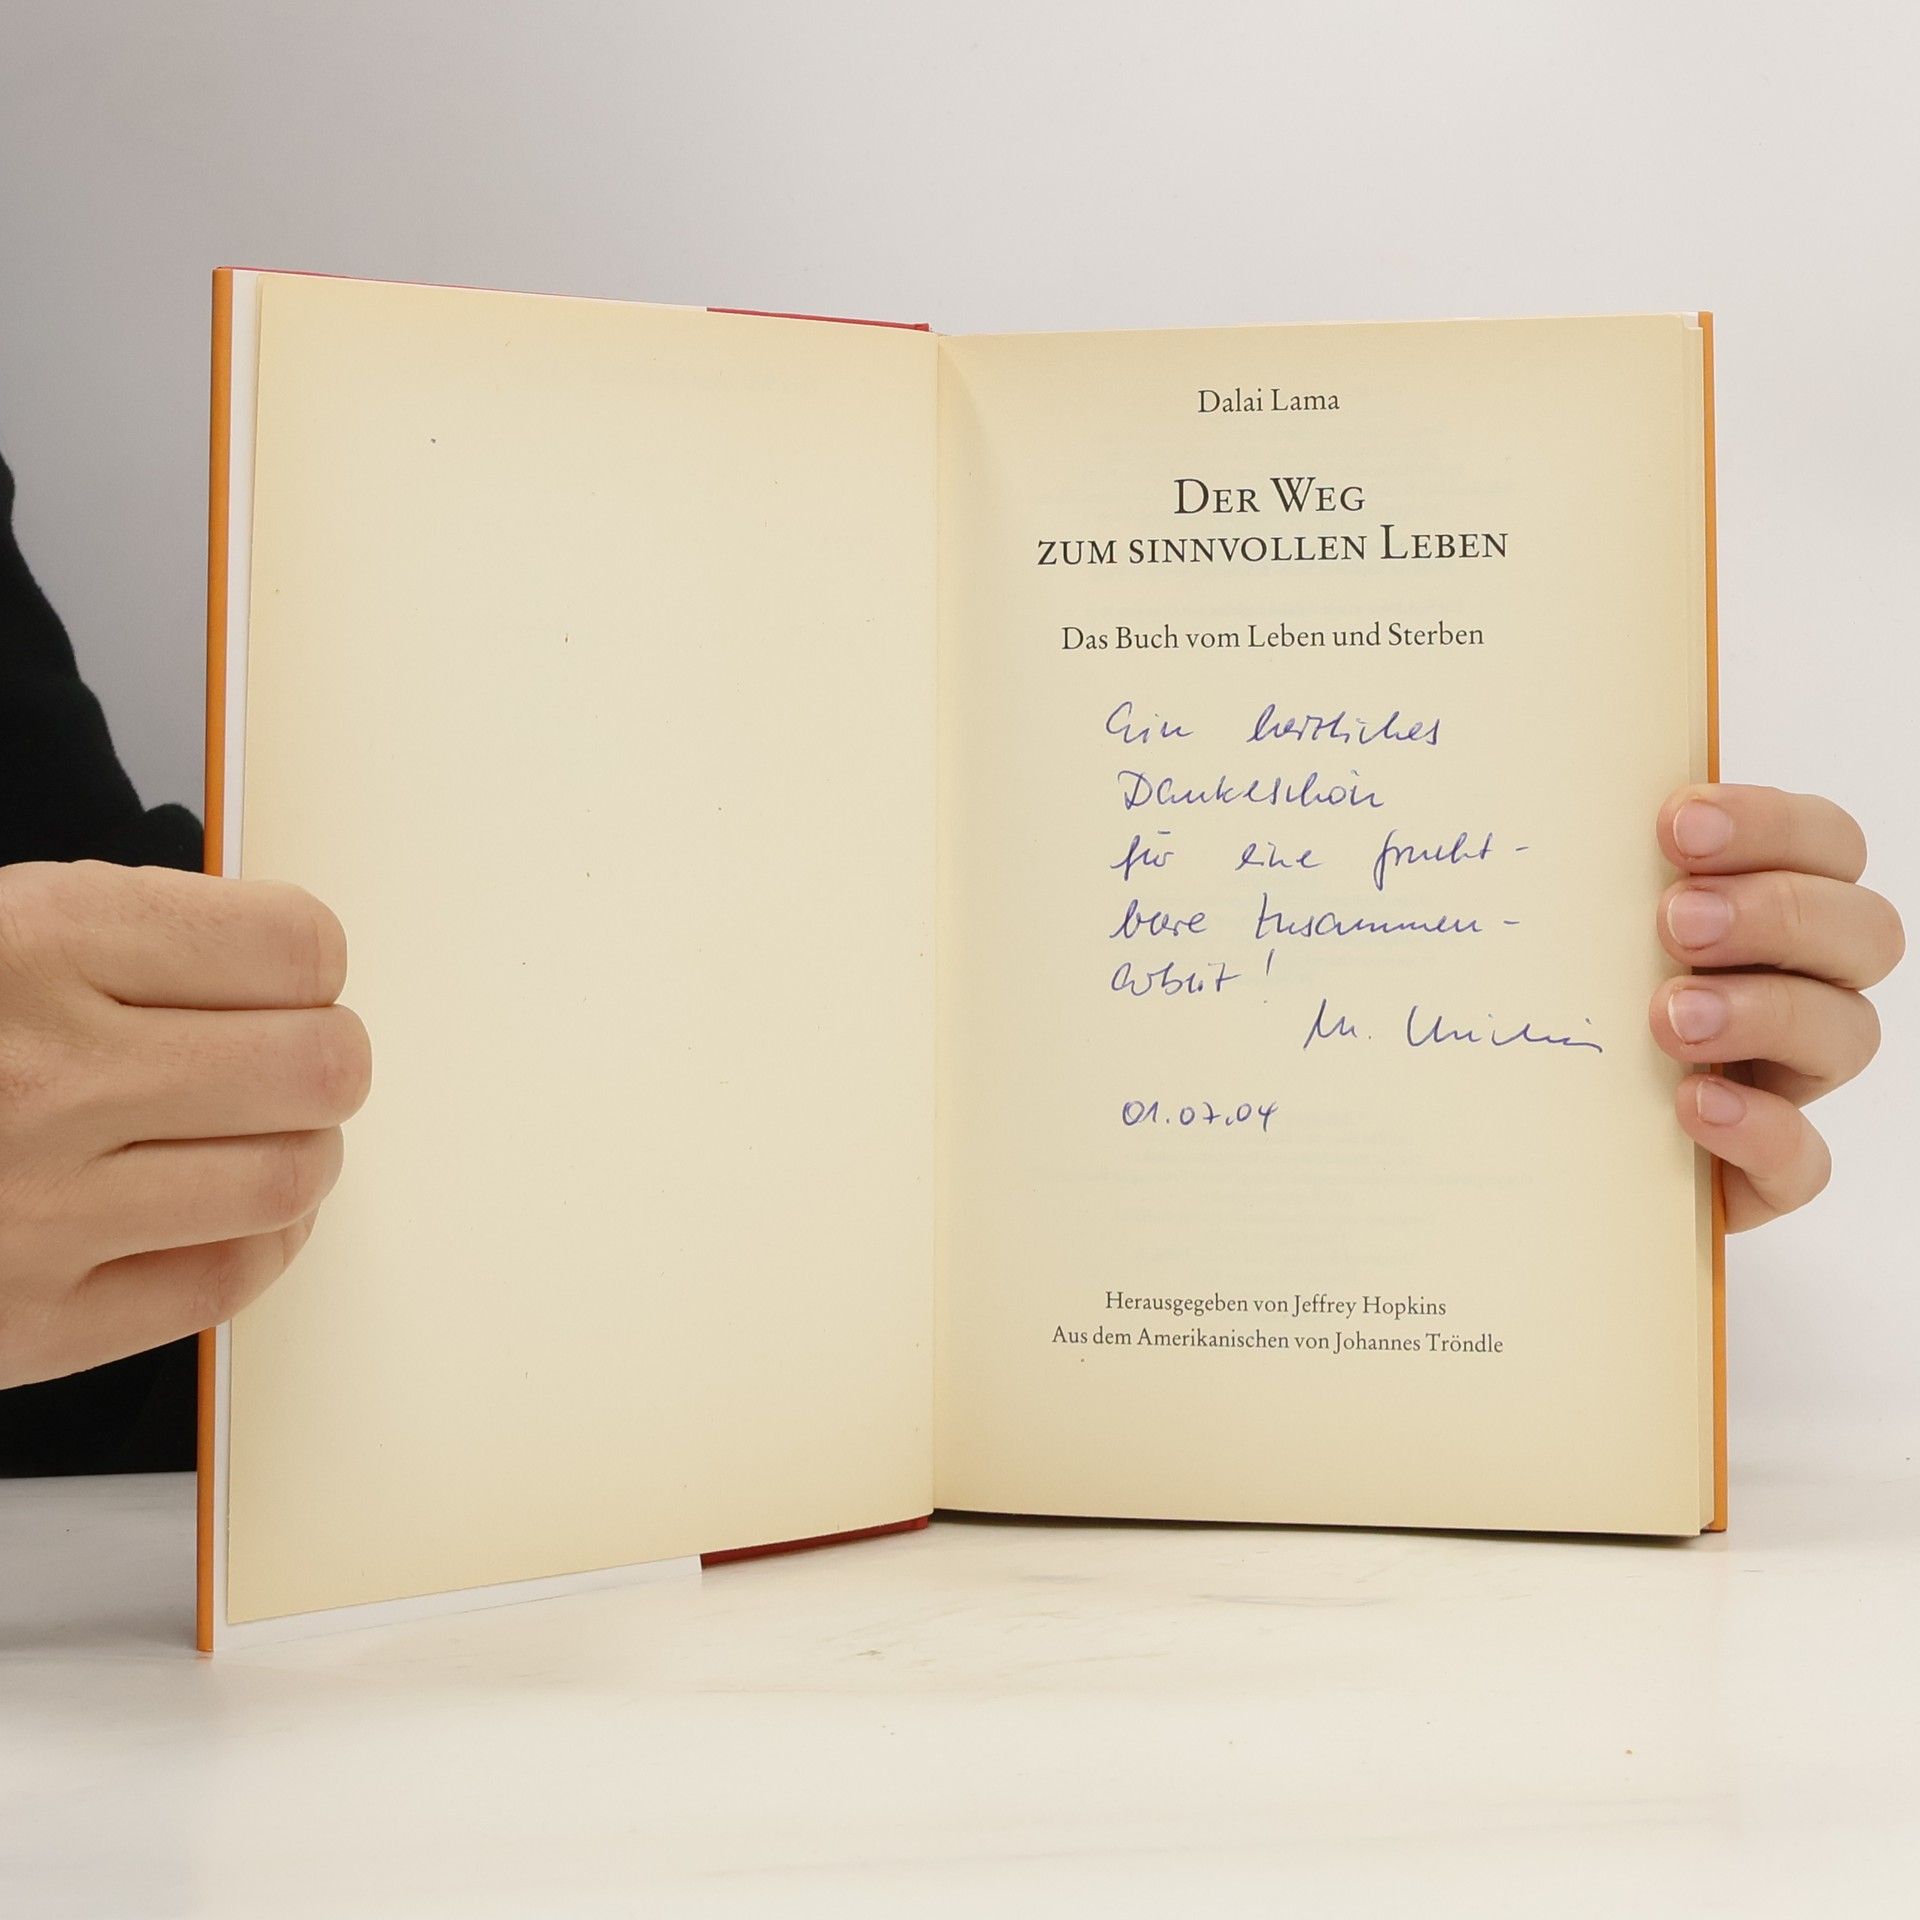 Dalai Lama
DER WEG
ZUM SINNVOLLEN LEBEN
Das Buch vom Leben und Sterben
Ein herzliches
Dankeschön
für eine frucht-
bare Zusammen-
arbeit!
M.
01.07.04
Herausgegeben von Jeffrey Hopkins
Aus dem Amerikanischen von Johannes Tröndle